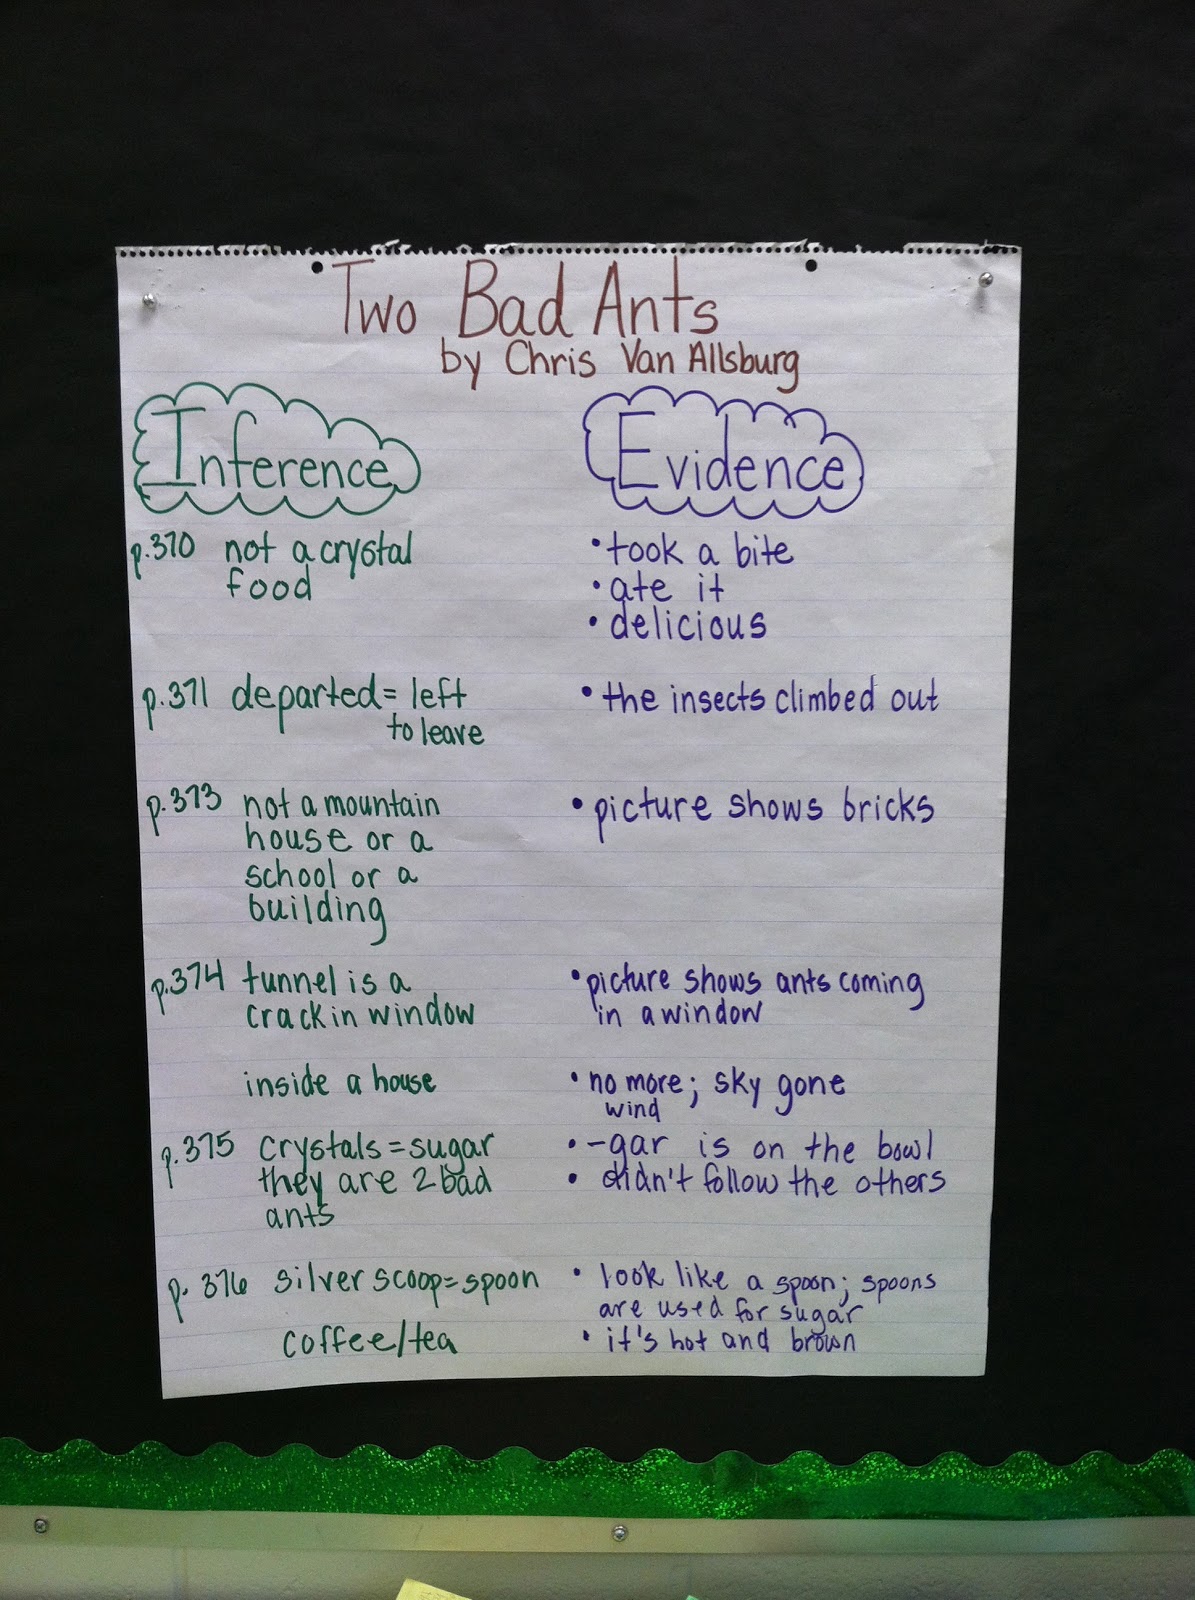 Two Bad Ants
by Chris Van Allsburg
Inference
Evidence
p.370 not a crystal
food
• took a bite
• ate it
• delicious
p.371 departed = left
to leave
• the insects climbed out
p.373 not a mountain
house or a
school or a
building
• picture shows bricks
p.374 tunnel is a
crack in window
• picture shows ants coming
in a window
inside a house
• no more; sky gone
wind
p.375 crystals = sugar
they are 2 bad
ants
• -gar is on the bowl
• didn't follow the others
p. 376 silver scoop = spoon
• look like a spoon; spoons
are used for sugar
coffee/tea
• it's hot and brown